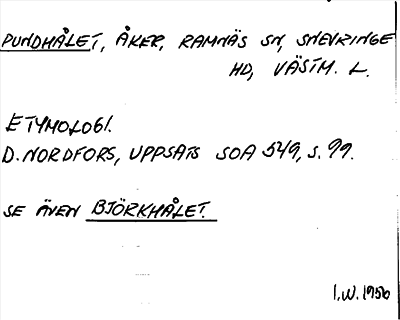 PUNDHÅLET, ÅKER, RAMNÄS SN, SNEVRINGE
HD, VÄSTM. L.
ETYMOLOGI.
D. NORDFORS, UPPSATS SOA 549, S. 99.
SE ÄVEN BJÖRKHÅLET.
I.W. 1956